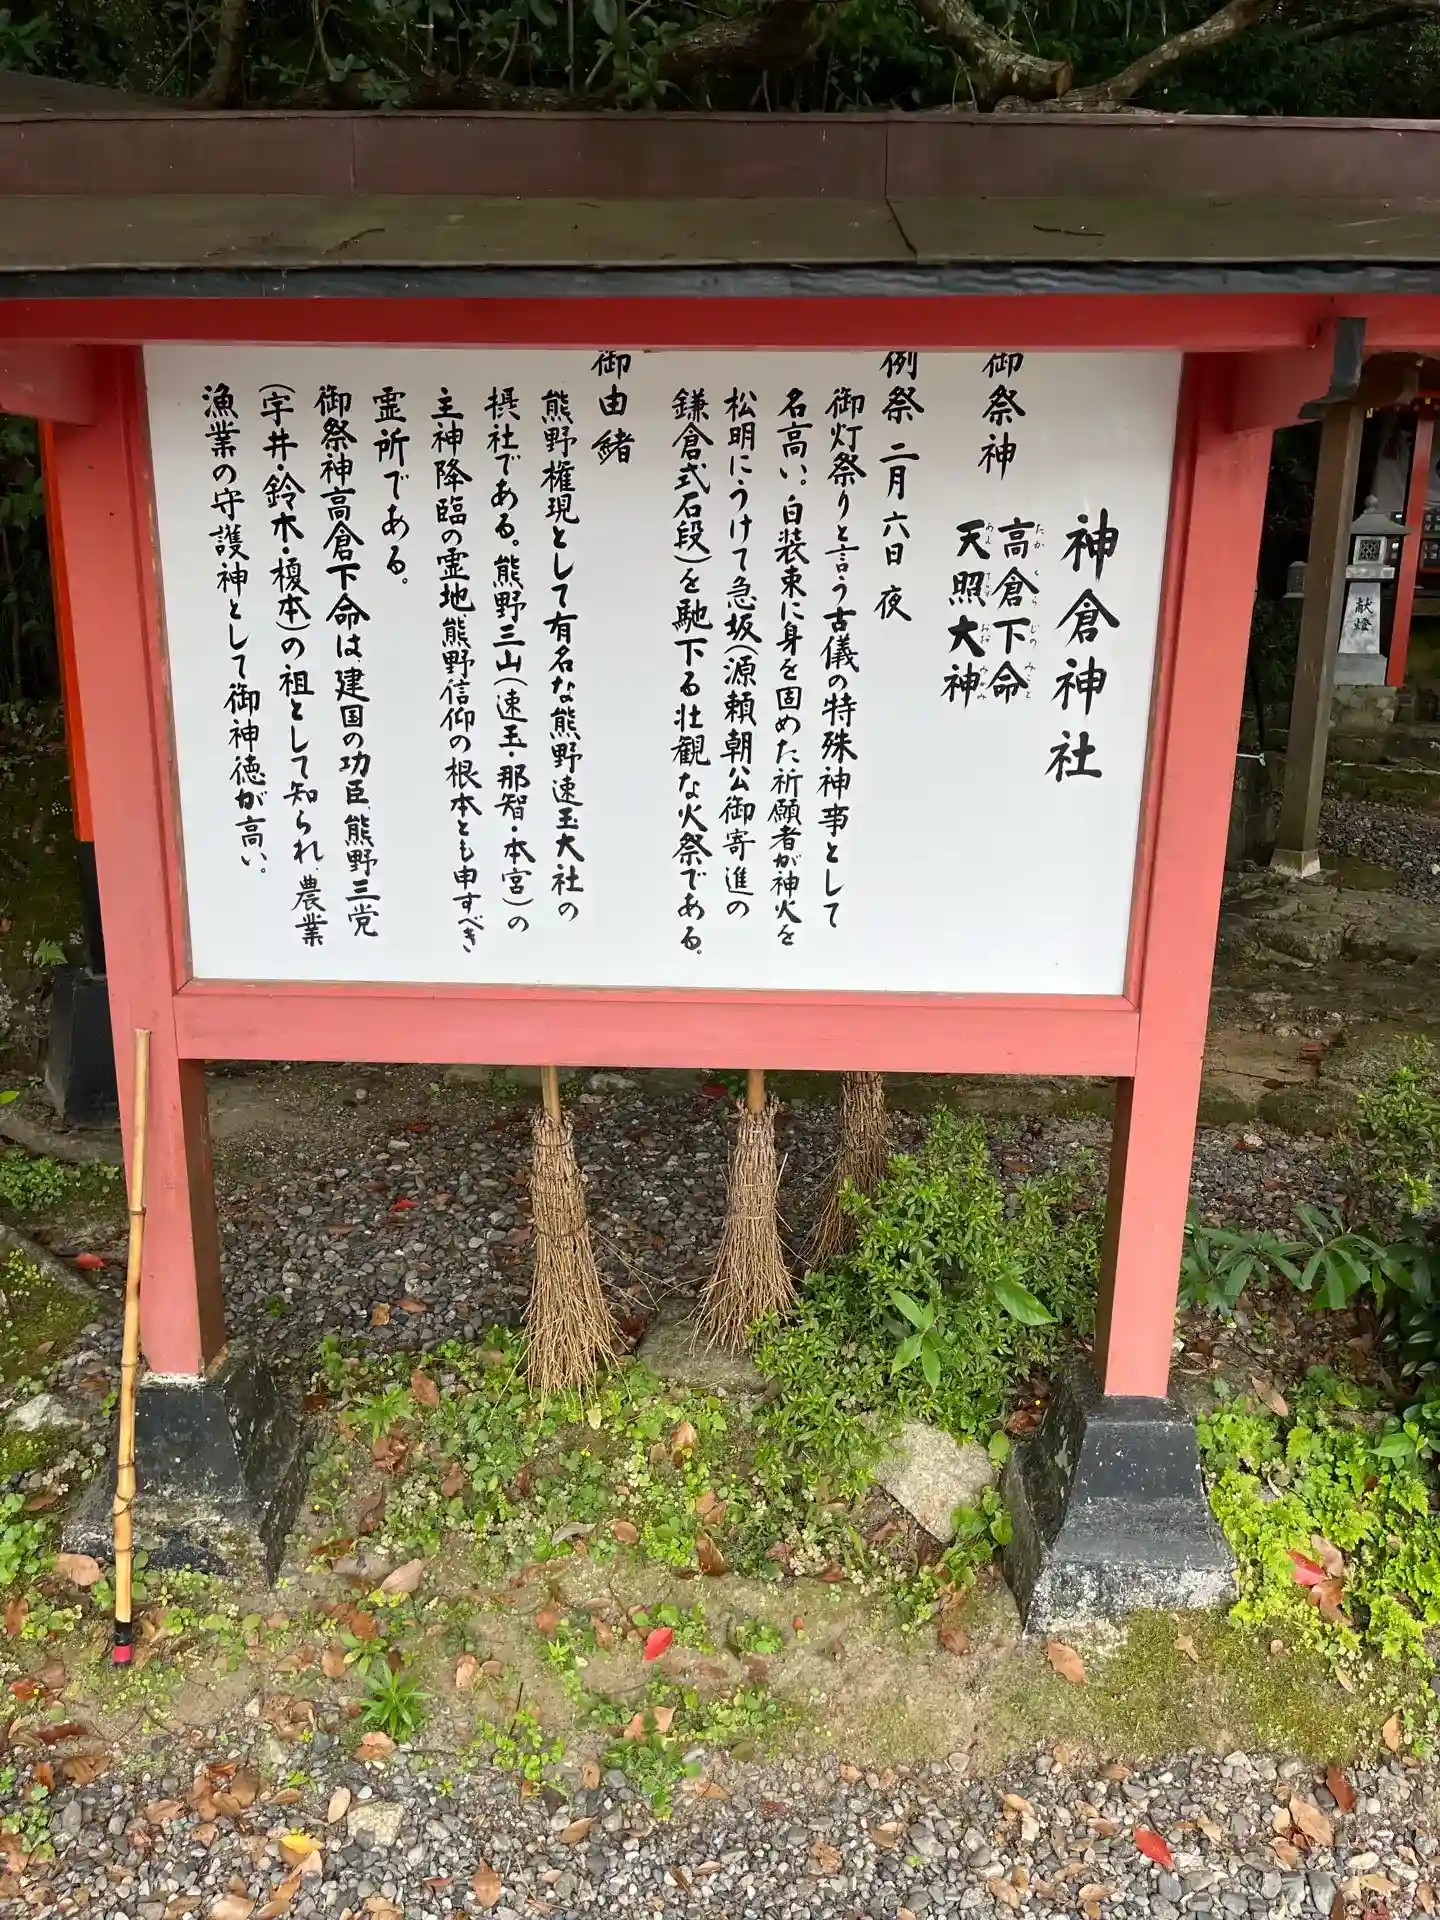 神倉神社
御祭神
高倉下命
たかくらじのみこと
天照大神
あまてらすおおみかみ
例祭 二月六日 夜
御灯祭りと言う古儀の特殊神事として
名高い。白装束に身を固めた祈願者が神火を
松明にうけて急坂(源頼朝公御寄進の
鎌倉式石段)を馳下る壮観な火祭である。
御由緒
熊野権現として有名な熊野速玉大社の
摂社である。熊野三山(速玉・那智・本宮)の
主神降臨の霊地、熊野信仰の根本とも申すべき
霊所である。
御祭神高倉下命は、建国の功臣、熊野三党
(宇井・鈴木・榎本)の祖として知られ、農業
漁業の守護神として御神徳が高い。
献燈